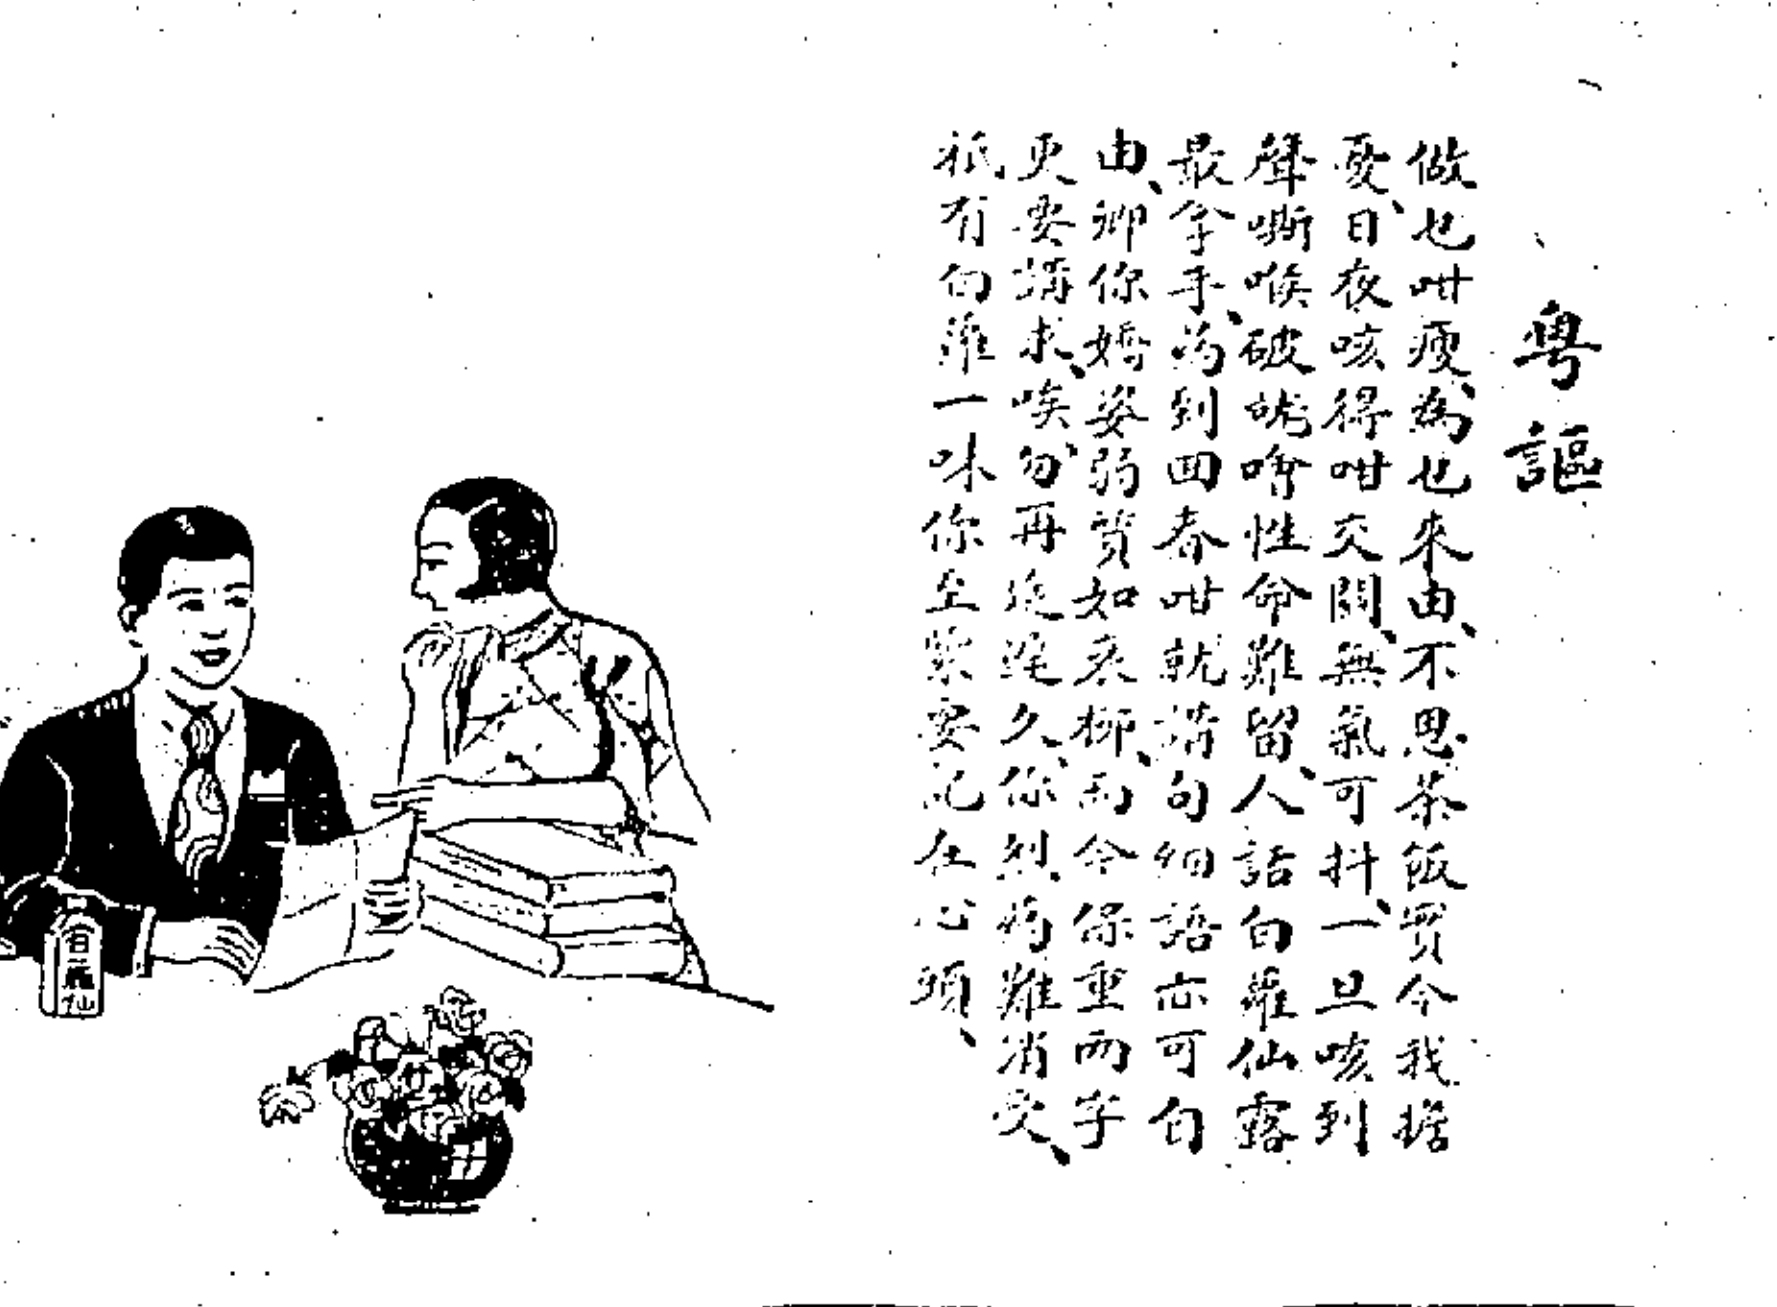 粵謳
做乜咁瘦、為乜來由、不思茶飯實令我擔
憂、日夜咳得咁交關、無氣可抖、一旦咳到
聲嘶喉破就噲性命難留、人話白蘿仙露
最拿手、為到回春咁就講句細語亦可自
由、卿你嬌姿弱質如衰柳、而今保重兩字
更要講求、唉、勿再延遲久、你列為難消受、
祇有白蘿一味你至緊要記在心頭、
白蘿仙